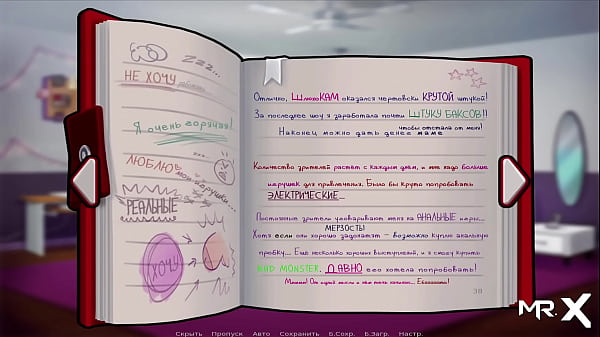 Zzz...
НЕ ХОЧУ
Я очень горячая!
ЛЮБЛЮ мои игрушки...
РЕАЛЬНЫЕ
ХОЧУ
Отлично, ШлюхоКАМ оказался чертовски КРУТОЙ штукой!
За последнее шоу я заработала почти ШТУКУ БАКСОВ!!
чтобы отстала от меня!
Наконец можно дать денег маме
Количество зрителей растёт с каждым днём, и мне надо больше
игрушек для привлечения. Было бы круто попробовать
ЭЛЕКТРИЧЕСКИЕ...
Постоянные зрители уговаривают меня на АНАЛЬНЫЕ игры...
МЕРЗОСТЬ!
Хотя если они хорошо задонатят - возможно куплю анальную
пробку... Ещё несколько хороших выступлений, и я смогу купить
BAD MONSTER. ДАВНО его хотела попробовать!
38
MR.X
Скрыть Пропуск Авто Сохранить Б.Сохр. Б.Загр. Настр.